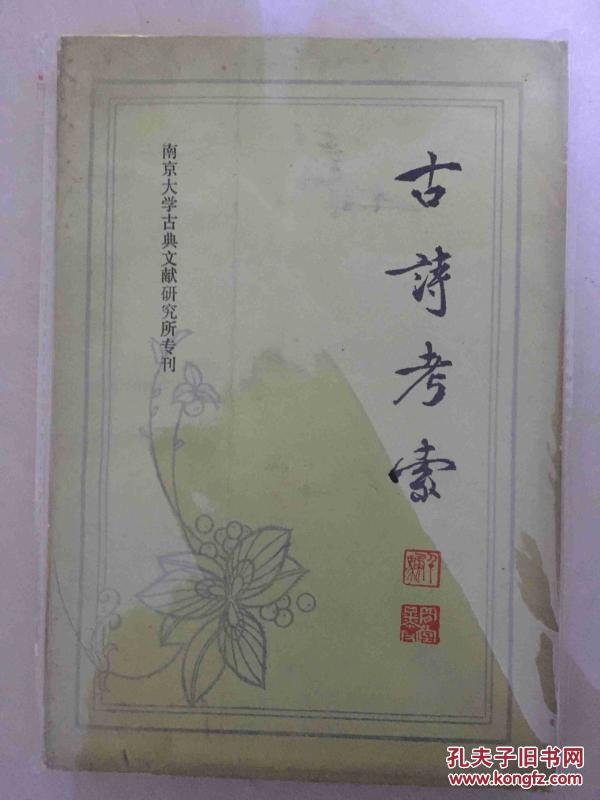 古詩考索
南京大学古典文献研究所专刊
千帆
闲堂
孔夫子旧书网
www.kongfz.com